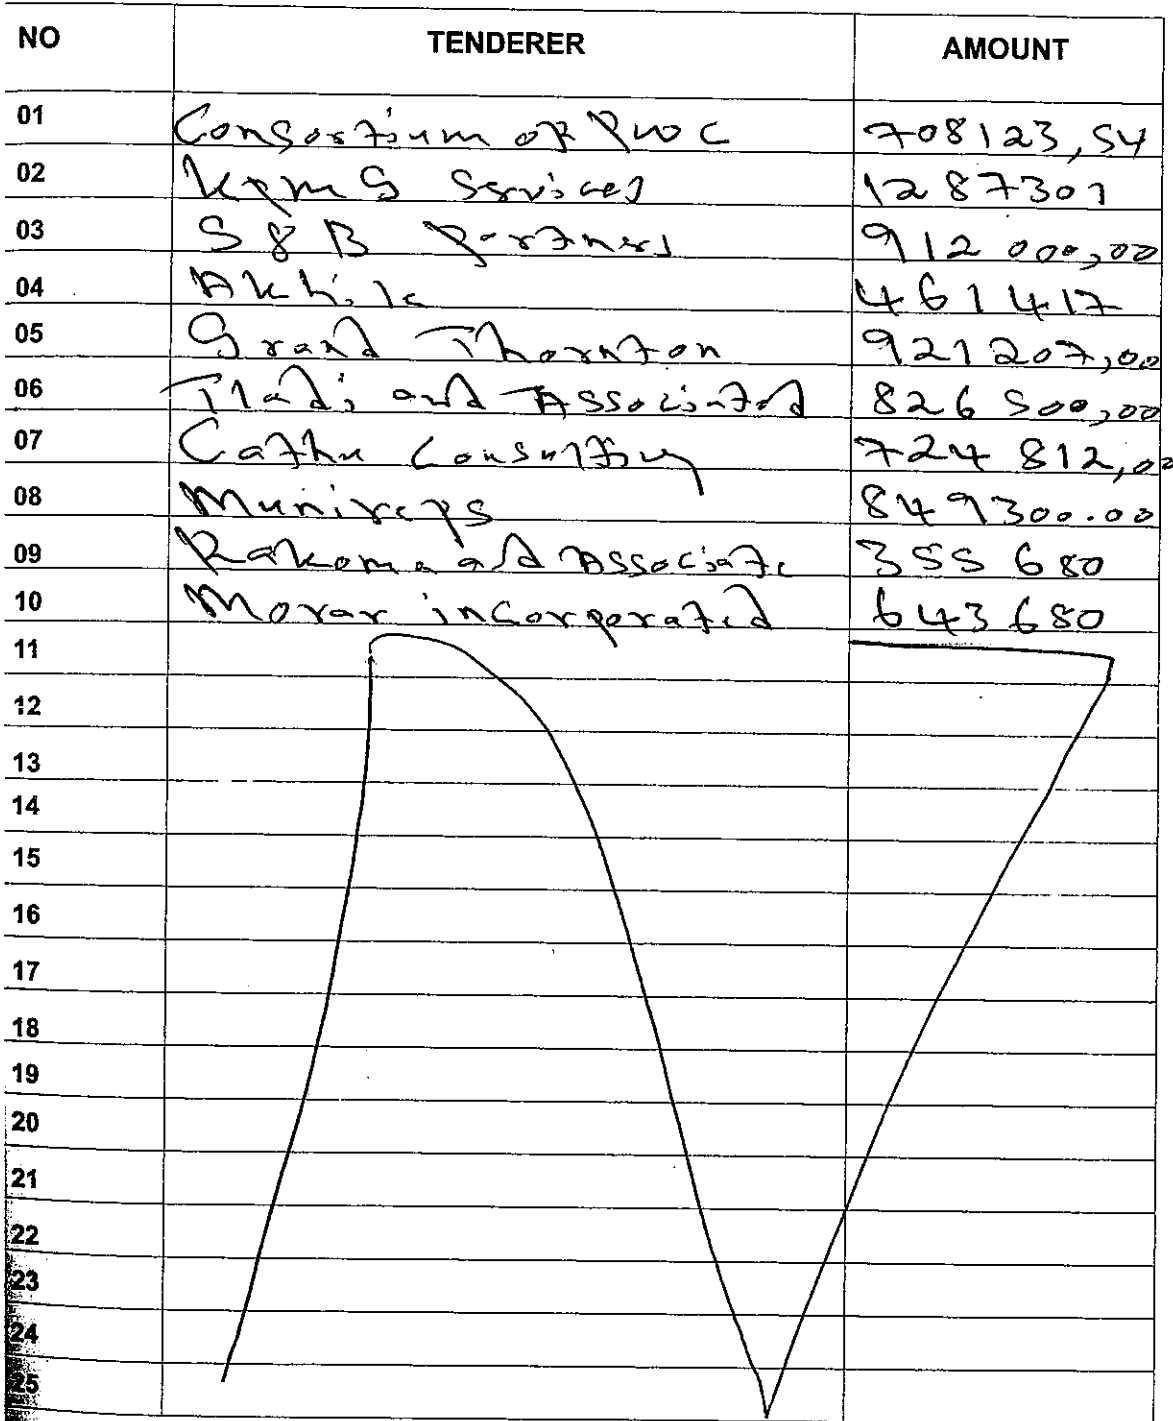 NO TENDERER AMOUNT
01 Consortium of PWC 708123,54
02 KPMG Services 1287301
03 S & B Partners 912 000,00
04 Akhile 461 417
05 Grand Thornton 921207,00
06 Tladi and Associated 826 500,00
07 Cathu Consulting 724 812,00
08 Munireps 849300.00
09 Rakoma and Associate 355 680
10 Morar incorporated 643 680
11
12
13
14
15
16
17
18
19
20
21
22
23
24
25